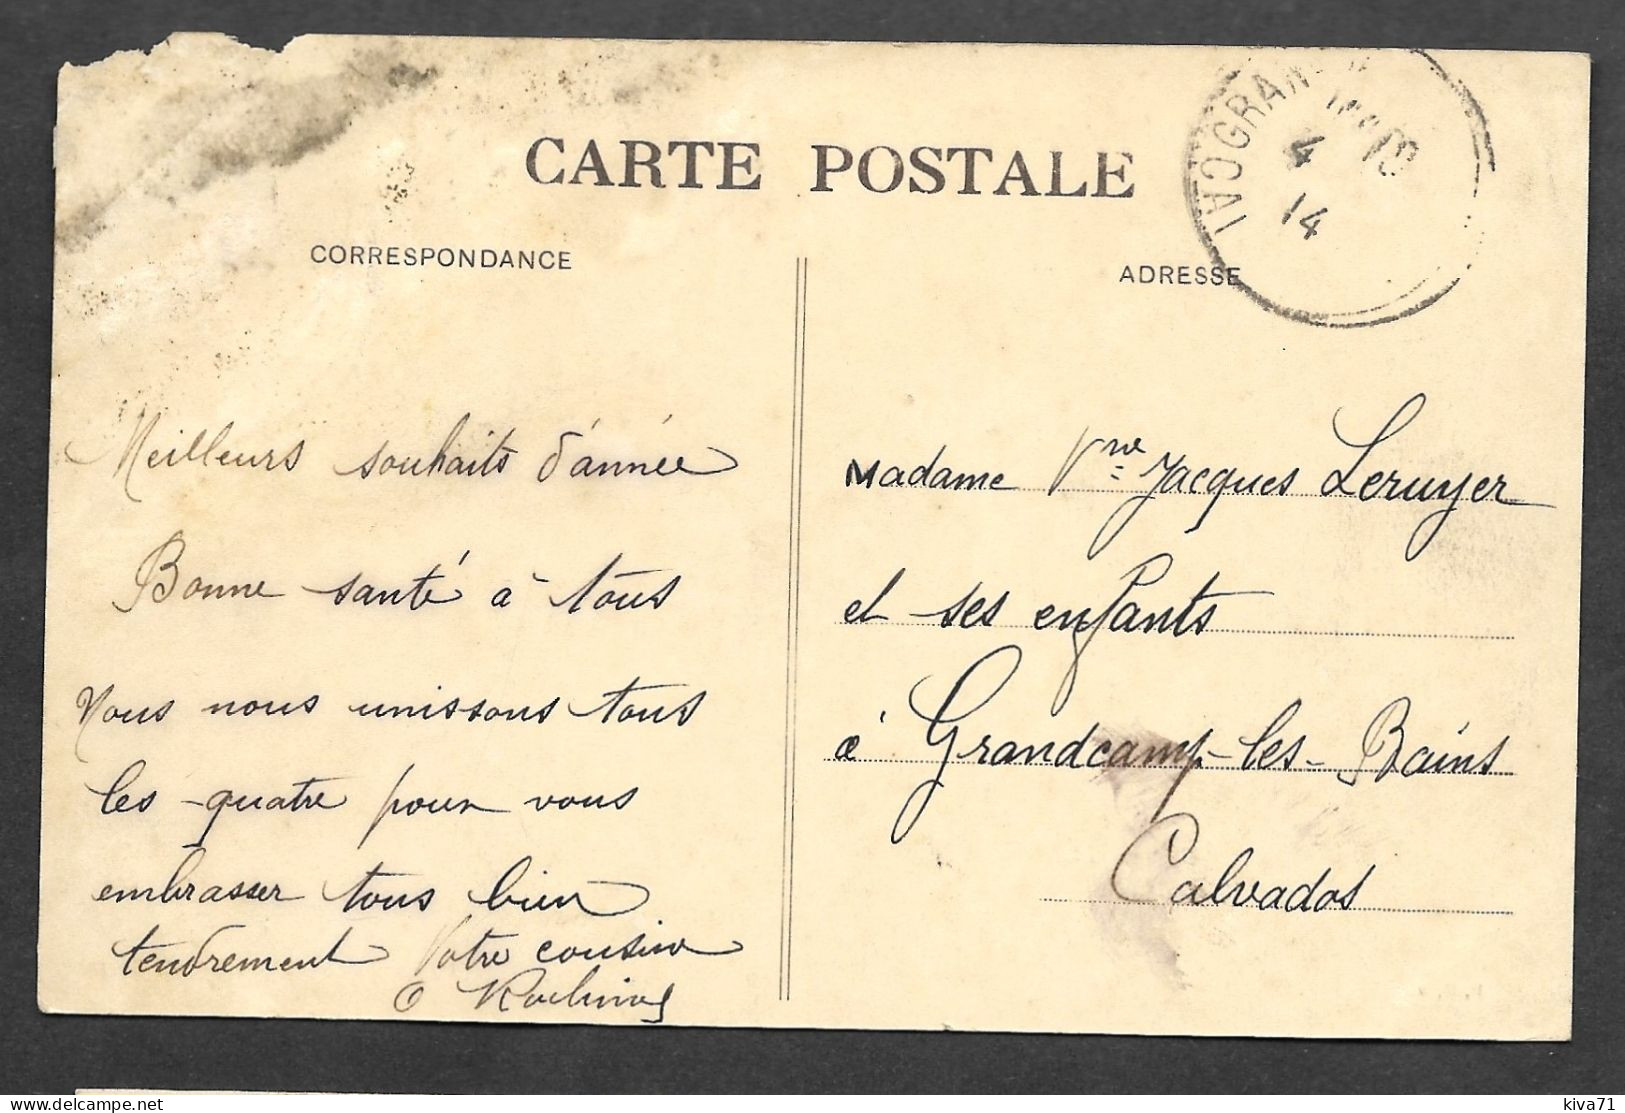 CARTE POSTALE
CORRESPONDANCE
ADRESSE
4
14
Meilleurs souhaits d'année
Bonne santé à tous
Nous nous unissons tous
les quatre pour vous
embrasser tous bien
tendrement Votre cousin
Madame Vve Jacques Leruyer
et ses enfants
à Grandcamp-les-Bains
Calvados
delcampe.net
kiva71